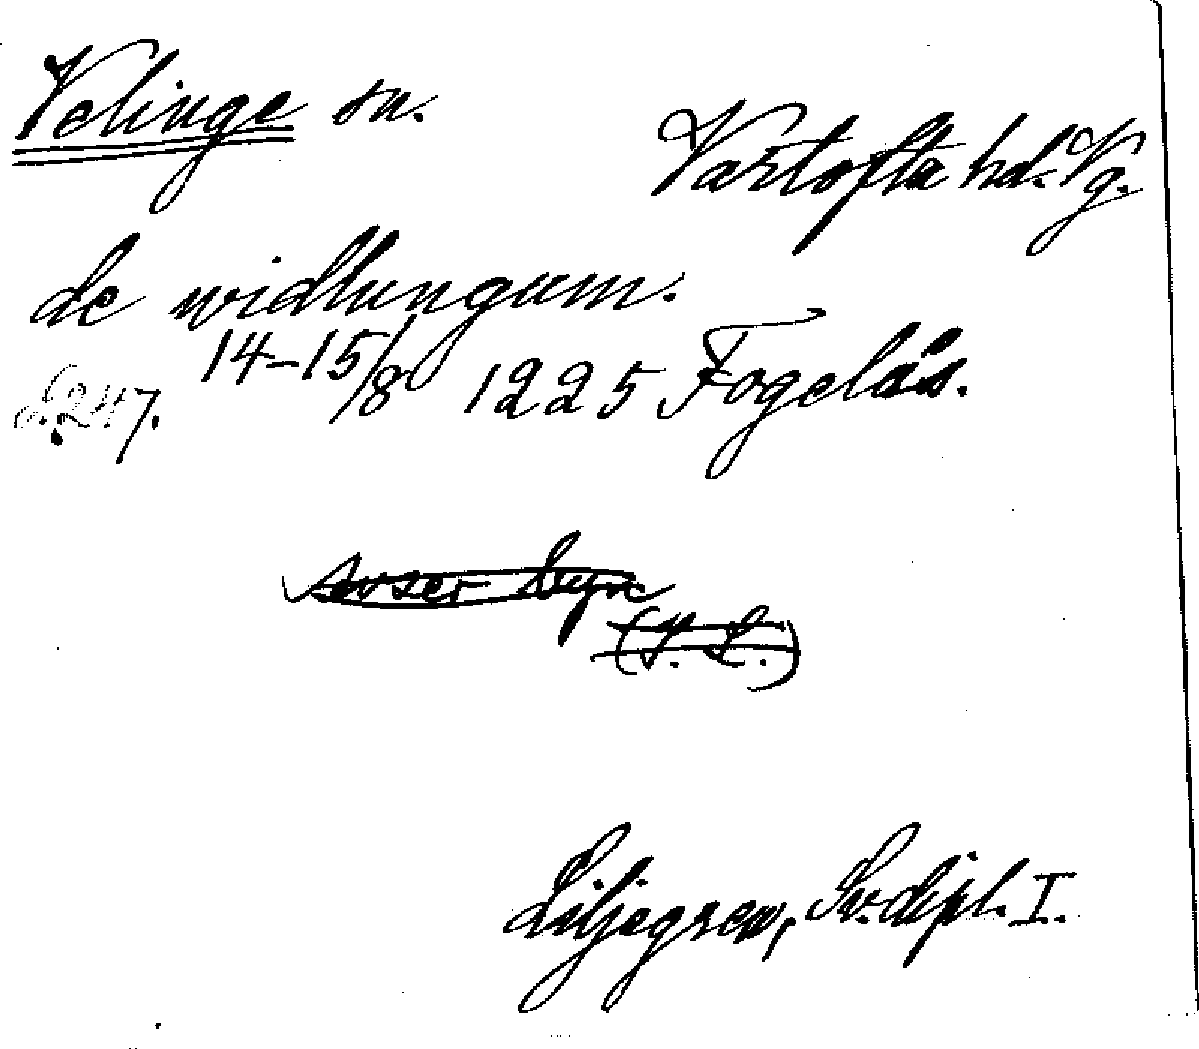 Velinge sn.
Vartofta hd. Vg.
de widhungum.
14-15/8 1225 Fogelås.
s. 247.
Avser Dyn
(I. L.)
Liljegren, Sv. dipl. I.